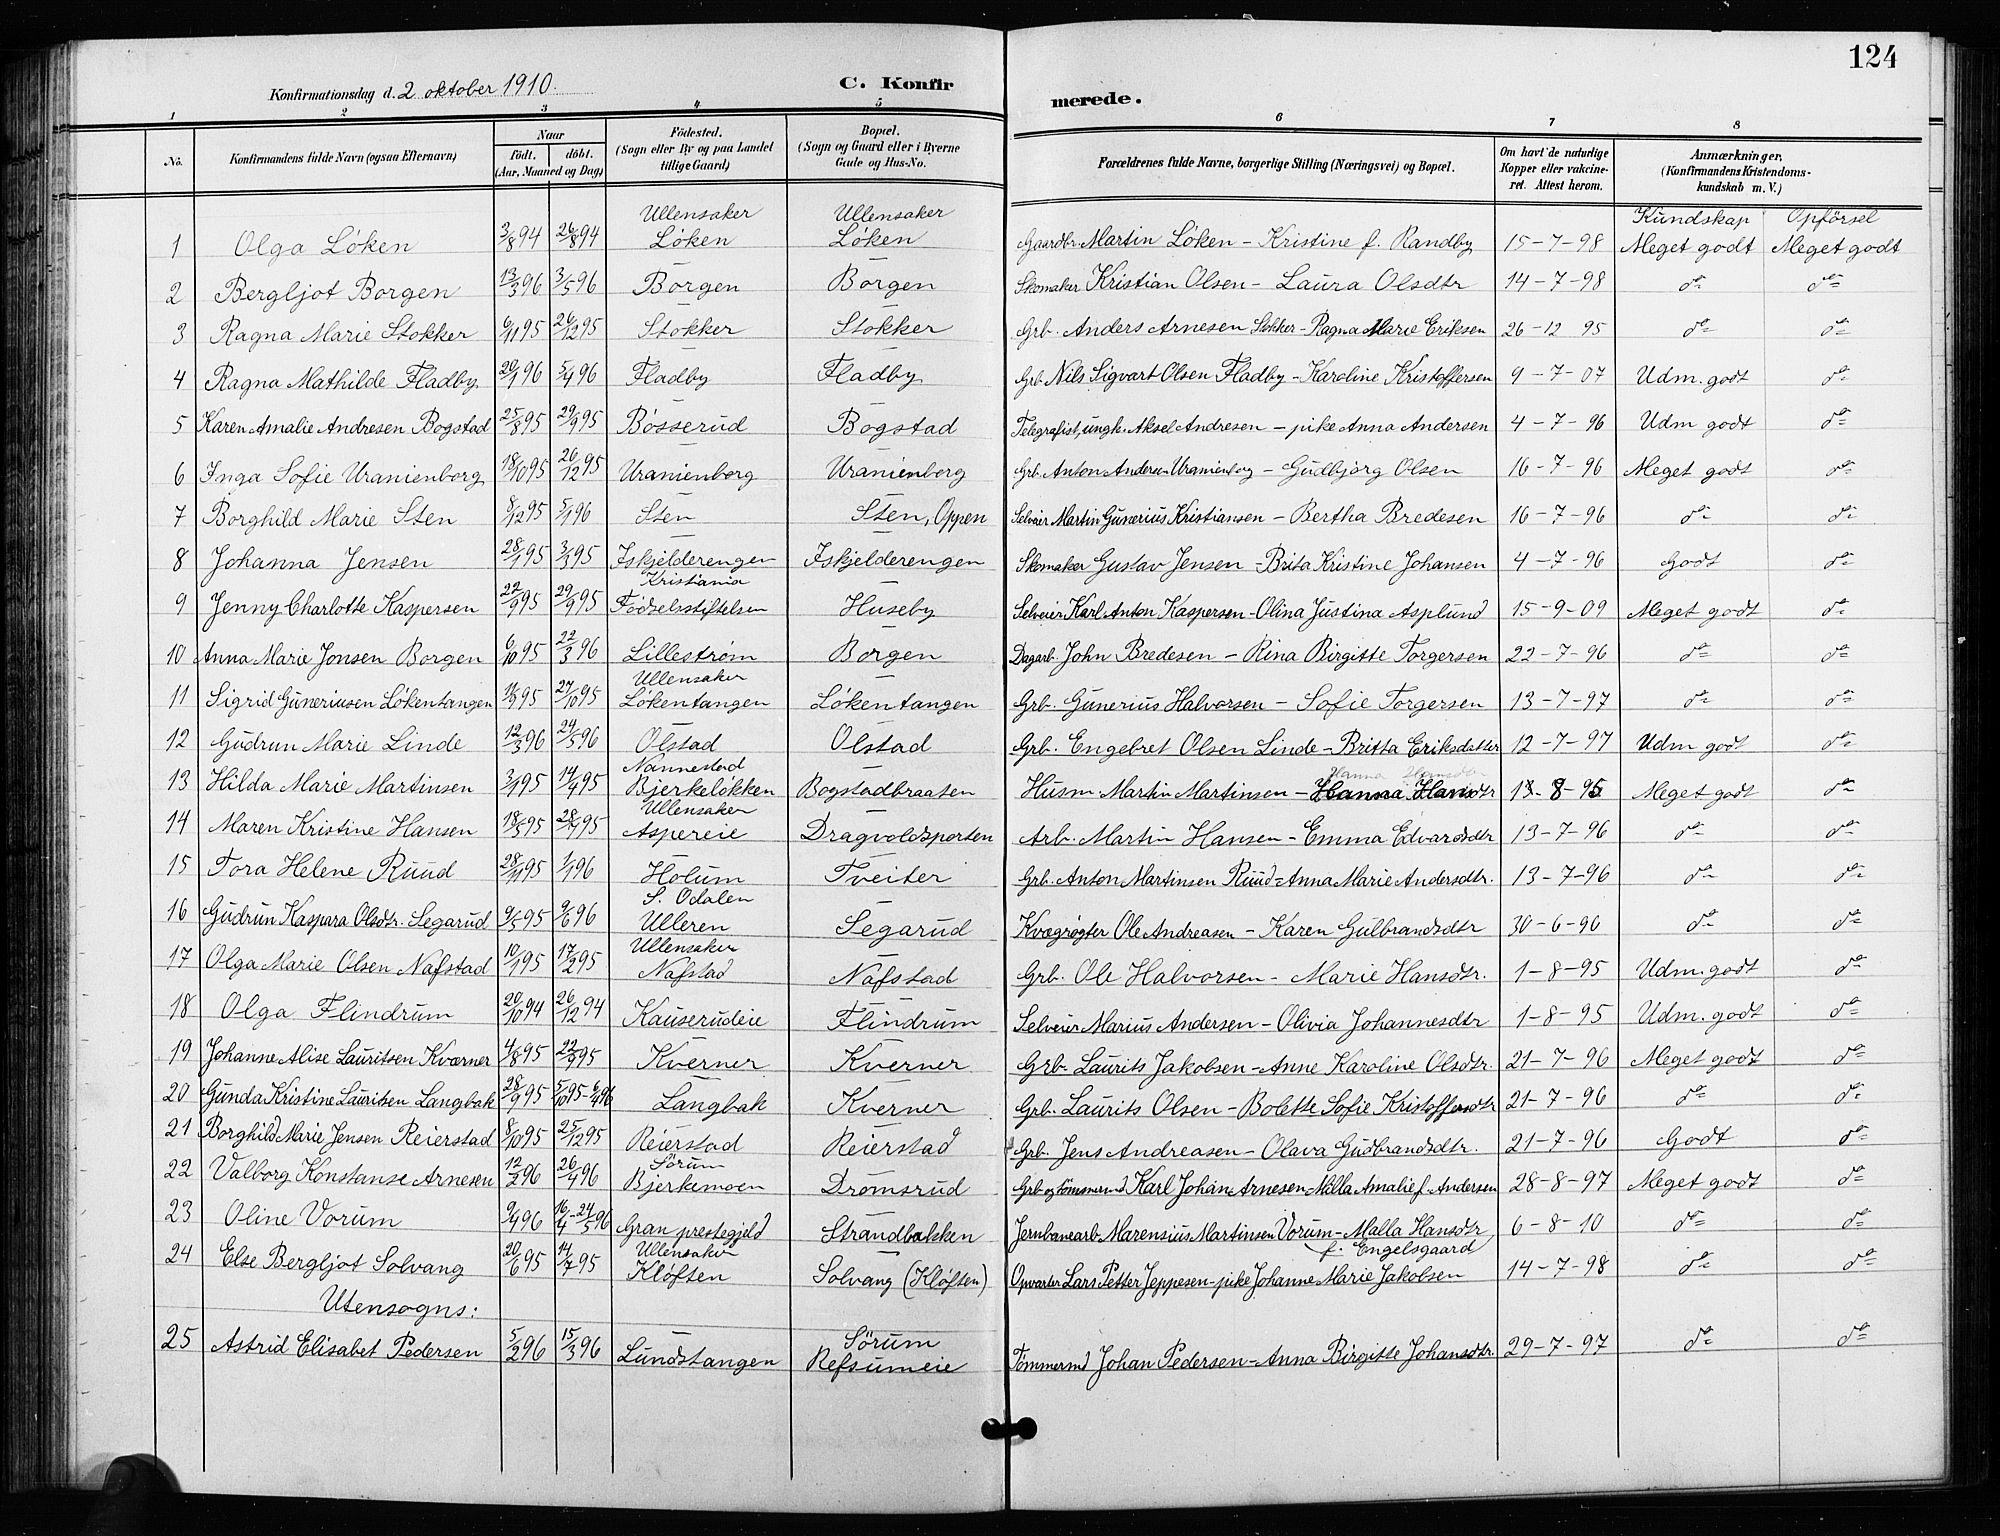 124
Konfirmationsdag d. 2 oktober 1910. C. Konfirmerede.
1 2 3 4 5 6 7 8
No. Konfirmandens fulde Navn (ogsaa Efternavn) Naar födt. döbt. (Aar, Maaned og Dag) Födested. (Sogn eller By og paa Landet tillige Gaard) Bopæl. (Sogn og Gaard eller i Byerne Gade og Hus-No. Forældrenes fulde Navne, borgerlige Stilling (Næringsvei) og Bopæl. Om havt de naturlige Kopper eller vakcineret. Attest herom. Anmærkninger, (Konfirmandens Kristendomskundskab m. V.)
Ullensaker Ullensaker Kundskap Opførsel
1 Olga Løken 3/8 94 26/8 94 Løken Løken Gaardbr. Martin Løken - Kristine f. Randby 15-7-98 Meget godt Meget godt
2 Bergljot Borgen 13/3 96 3/5 96 Borgen Borgen Skomaker Kristian Olsen - Laura Olsdtr 14-7-98 do do
3 Ragna Marie Stokker 6/11 95 26/12 95 Stokker Stokker Grb. Anders Arnesen Stokker - Ragna Marie Eriksen 26-12 95 do do
4 Ragna Mathilde Fladby 20/1 96 5/4 96 Fladby Fladby Grb. Nils Sigvart Olsen Fladby - Karoline Kristoffersen 9-7-07 Udm. godt do
5 Karen Amalie Andresen Bogstad 25/8 95 29/9 95 Bøsserud Bogstad Telegrafist, ungk. Aksel Andresen - pike Anna Andersen 4-7-96 Udm godt do
6 Inga Sofie Uranienborg 18/10 95 26/12 95 Uranienborg Uranienborg Grb. Anton Andersen Uranienborg - Gudbjørg Olsen 16-7-96 Meget godt do
7 Borghild Marie Sten 8/12 95 5/1 96 Sten Sten, Oppen Selveier Martin Gunerius Kristiansen - Bertha Bredesen 16-7-96 do do
8 Johanna Jensen 28/1 95 3/3 95 Iskjelderengen Iskjelderengen Skomaker Gustav Jensen - Brita Kristine Johansen 4-7-96 Godt do
Kristiania
9 Jenny Charlotte Kaspersen 22/9 95 29/9 95 Fødselsstiftelsen Huseby Selveier Karl Anton Kaspersen - Olina Justina Asplund 15-9-09 Meget godt do
10 Anna Marie Jonsen Borgen 6/10 95 22/3 96 Lillestrøm Borgen Dagarb. John Bredesen - Rina Birgitte Torgersen 22-7-96 do do
Ullensaker
11 Sigrid Guneriusen Løkentangen 11/9 95 27/10 95 Løkentangen Løkentangen Grb. Gunerius Halvorsen - Sofie Torgersen 13-7-97 do do
12 Gudrun Marie Linde 12/3 96 24/5 96 Olstad Olstad Grb. Engebret Olsen Linde - Britta Eriksdatter 12-7-97 Udm godt do
Nannestad
13 Hilda Marie Martinsen 3/1 95 14/4 95 Bjerkeløkken Bogstadbraaten Husm. Martin Martinsen - Hanna Hansdtr 13-8-95 Meget godt do
Ullensaker
14 Maren Kristine Hansen 18/5 95 28/7 95 Aspereie Dragvoldsporten Arb. Martin Hansen - Emma Edvardsdtr 13-7-96 do do
15 Tora Helene Ruud 28/11 95 1/1 96 Holum Tveiter Grb. Anton Martinsen Ruud - Anna Marie Andersdtr. 13-7-96 do do
S. Odalen
16 Gudrun Kaspara Olsdtr. Segarud 9/5 95 9/6 96 Ulleren Segarud Kvægrøgter Ole Andreasen - Karen Gulbrandsdtr 30-6-96 do do
Ullensaker
17 Olga Marie Olsen Nafstad 10/1 95 17/2 95 Nafstad Nafstad Grb. Ole Halvorsen - Marie Hansdtr. 1-8-95 Udm. godt do
18 Olga Flindrum 20/10 94 26/12 94 Kauserudeie Flindrum Selveier Marius Andersen - Olivia Johannesdtr 1-8-95 Udm. godt do
19 Johanne Alise Lauritsen Kværner 4/8 95 22/9 95 Kverner Kverner Grb. Laurits Jakobsen - Anne Karoline Olsdtr. 21-7-96 Meget godt do
20 Gunda Kristine Lauritsen Langbak 28/9 95 5/10 95 - 6/4 96 Langbak Kverner Grb. Laurits Olsen - Bolette Sofie Kristoffersdtr 21-7-96 do do
21 Borghild Marie Jensen Reierstad 8/10 95 25/12 95 Reierstad Reierstad Grb. Jens Andreasen - Olava Gudbrandsdtr. 21-7-96 Godt do
Sørum
22 Valborg Konstanse Arnesen 12/2 96 26/4 96 Bjerkemoen Dromsrud Grb og tømmermd Karl Johan Arnesen Malla Amalie f. Andersen 28-8-97 Meget godt do
23 Oline Vorum 9/4 96 16/4 - 24/5 96 Gran prestegjeld Strandbakken Jernbanearb. Marensius Martinsen Vorum - Malla Hansdtr 6-8-10 do do
Ullensaker f. Engelsgaard
24 Else Bergljot Solvang 20/6 95 14/7 95 Kløften Solvang (Kløften) Opvarter Lars Petter Jeppesen - pike Johanne Marie Jakobsen 14-7-98 do do
Utensogns:
Sørum
25 Astrid Elisabet Pedersen 5/2 96 15/3 96 Lundstangen Refsumeie Tømmermd Johan Pedersen - Anna Birgitte Johansdtr. 29-7-97 do do